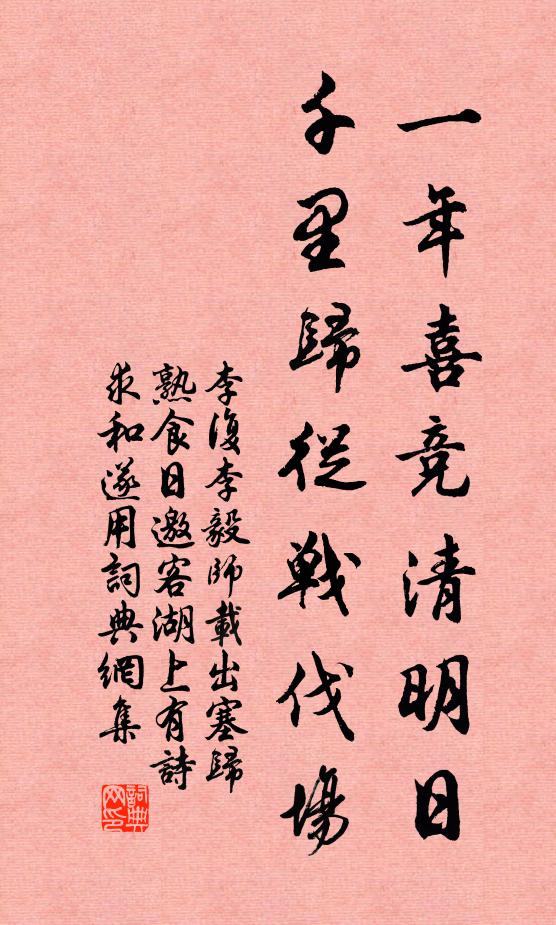 一年喜竞清明日
千里歸從戦伐場
李復李毅師載出塞歸
熟食日邀客湖上有詩
求和遂用詞典網集
詞典网印